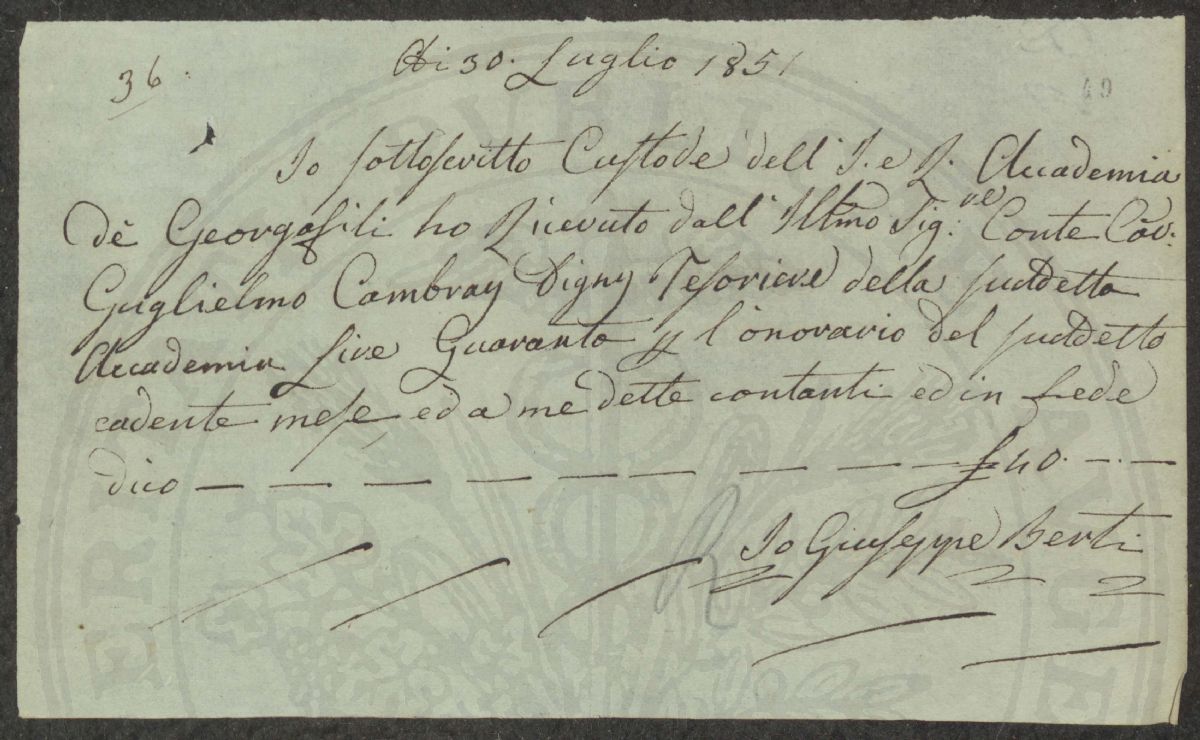 36.
Adi 30. Luglio 1851
49
Io sottoscritto Custode dell' I. e R. Accademia
dè Georgofili ho Ricevuto dall' Illmo Sig.re Conte Cav:
Guglielmo Cambray Digny Tesoriere della suddetta
Accademia Lire Quaranta p l'onorario del suddetto
cadente mese ed a me dette contanti ed in fede
dico — — — — — — — — £ 40. — · —
Io Giuseppe Berti